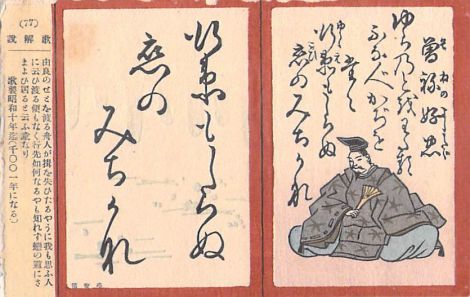 曾祢好忠
ゆらのとをわたる
ふな人かぢを
たえ
行衛もしらぬ
恋の
みちかな
行衛もしらぬ
恋の
みちかな
(77) 歌解説
由良のせとを渡る舟人が揖を失ひたるやうに我も思ふ人
に云ひ渡る便もなく行先如何なるやも知れず戀の道にさ
まよひ居ると云ふ意なり
歌製昭和十年迄(千〇〇一年になる)